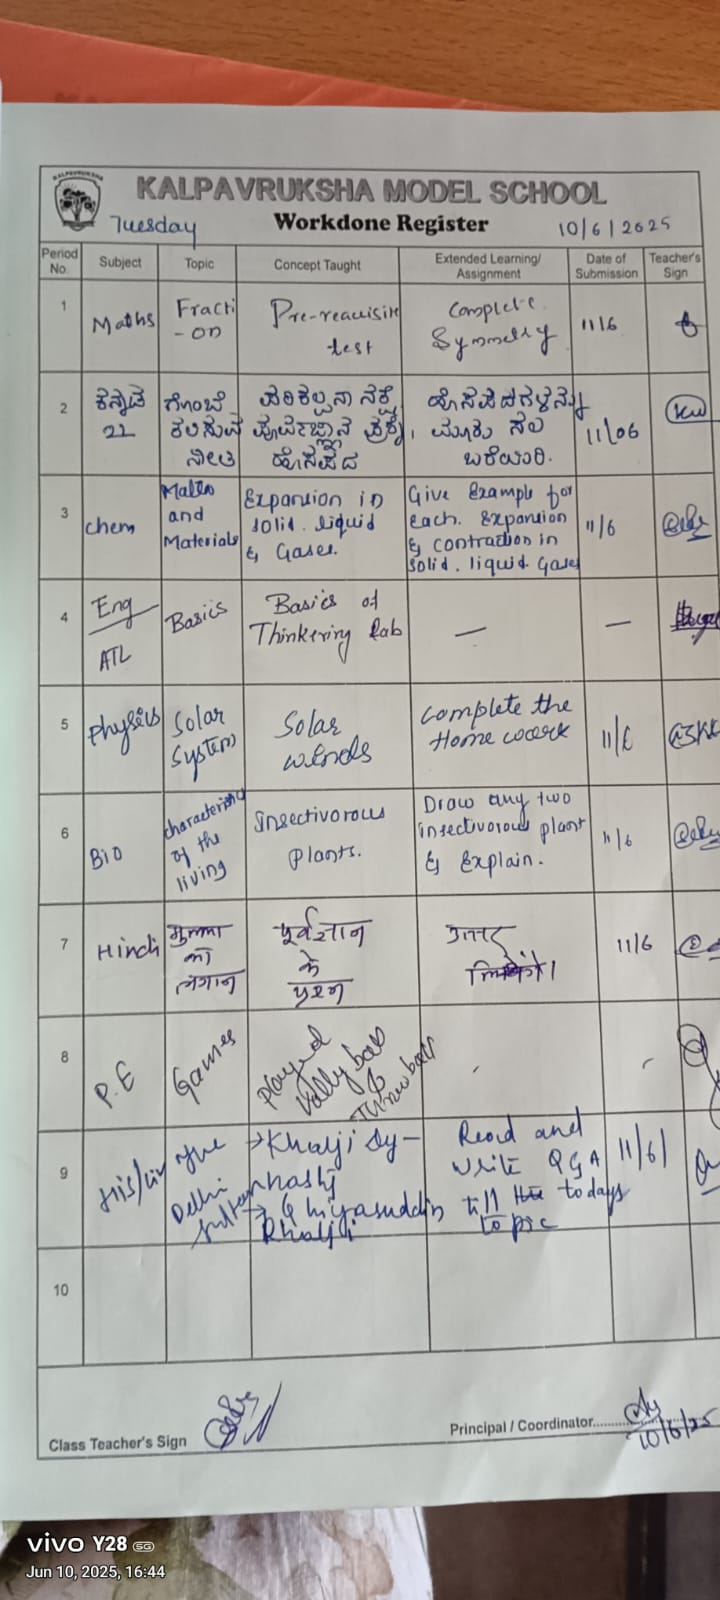 KALPAVRUKSHA MODEL SCHOOL
Tuesday Workdone Register 10/6/2025
Period No. Subject Topic Concept Taught Extended Learning/ Assignment Date of Submission Teacher's Sign
1 Maths Fracti-on Pre-requisite test Complete Symmetry 11/6
2 ಕನ್ನಡ ಗೊಂಬೆ ಕಲಿಸುವ ನೀತಿ ಪರಿಕಲ್ಪನಾ ನಕ್ಷೆ ಹೊಸಪದ 11/06
3 Chem and Materials Expansion in solid. liquid & Gases. Give Example for each. Expansion & contraction in solid. liquid. Gases 11/6
4 Eng ATL Basics Basics of Thinkering Lab — —
5 Physics Solar System Solar winds Complete the Home work 11/6
6 Bio characteristics of the living Insectivorous Plants. Draw any two insectivorous plant & Explain. 11/6
7 Hindi का लगान पूर्वज्ञान के प्रश्न उत्तर 11/6
8 P.E Games Played & Throwball - -
9 His/Civ The Delhi →Khalji Dy- → Ghiyasuddin Khalji Read and write Q&A till todays topic 11/6/
10
Class Teacher's Sign Principal / Coordinator 10/6/25
vivo Y28 5G
Jun 10, 2025, 16:44